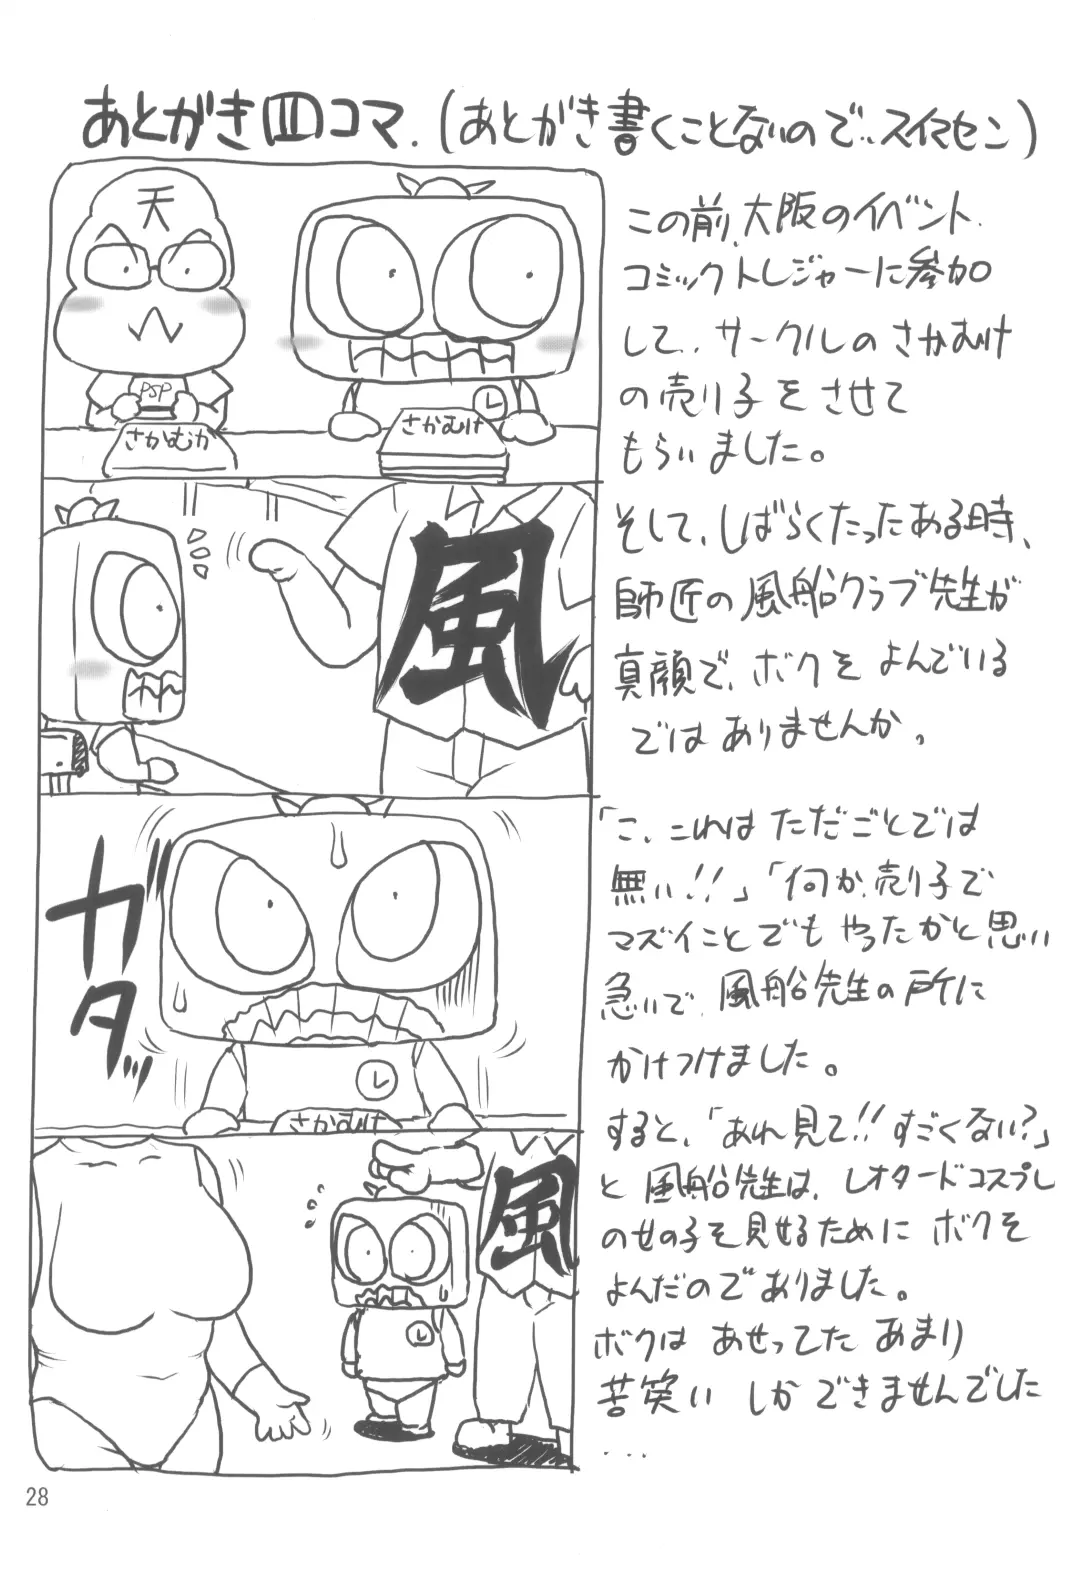 あとがき四コマ.(あとがき書くことないので‥スイマセン)
天
PSP
さかむけ
さかむけ
この前、大阪のイベント.
コミックトレジャーに参加
して‥サークルのさかむけ
の売り子をさせて
もらいました。
風
そして、しばらくたったある時、
師匠の風船クラブ先生が
真顔で、ボクをよんでいる
ではありませんか。
カタッ
さかむけ
「こ、これはただごとでは
無い!!」「何か、売り子で
マズイことでもやったかと思い
急いで、風船先生の所に
かけつけました。
風
すると、「あれ見て!!すごくない?」
と風船先生は、レオタードコスプレ
の女の子を見せるためにボクを
よんだのでありました。
ボクはあせってたあまり
苦笑いしかできませんでした
....
28